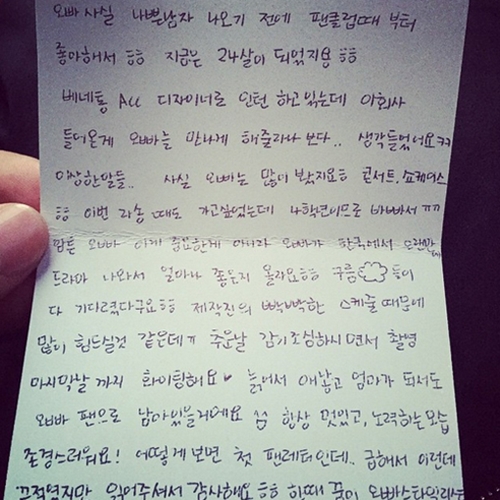 오빠 사실 나쁜남자 나오기 전에 팬클럽때 부터
좋아해서 ㅎㅎ 지금은 24살이 되었지용 ㅎㅎ
베네통 ACC 디자이너로 인턴 하고있는데 이회사
들어온게 오빠를 만나게 해줄라나 보다.. 생각들었어요ㅋㅋ
이상한말들.. 사실 오빠는 많이 봤지요ㅎ 콘서트, 쇼케이스
ㅎㅎ 이번 때도 가고싶었는데 4학년이므로 바빠서 ㅠㅠ
암튼 오빠 이게 중요한게 아니라 오빠가 한국에서 오랜만에
드라마 나와서 얼마나 좋은지 몰라요ㅎㅎ 구름 들이
다 기다리고 제작진의 빡빡한 스케줄 때문에
많이 힘드실것 같은데ㅠ 추운날 감기조심하시면서 촬영
마지막날 까지 화이팅해요♥ 늙어서 애낳고 엄마가 되서도
오빠 팬으로 남아있을거에요 항상 멋있고, 노력하는모습
존경스러워요! 어떻게 보면 첫 팬레터인데.. 급해서 이런데
끄적였지만 읽어주셔서 감사해요 ㅎㅎ 꿈이 오빠스타일리